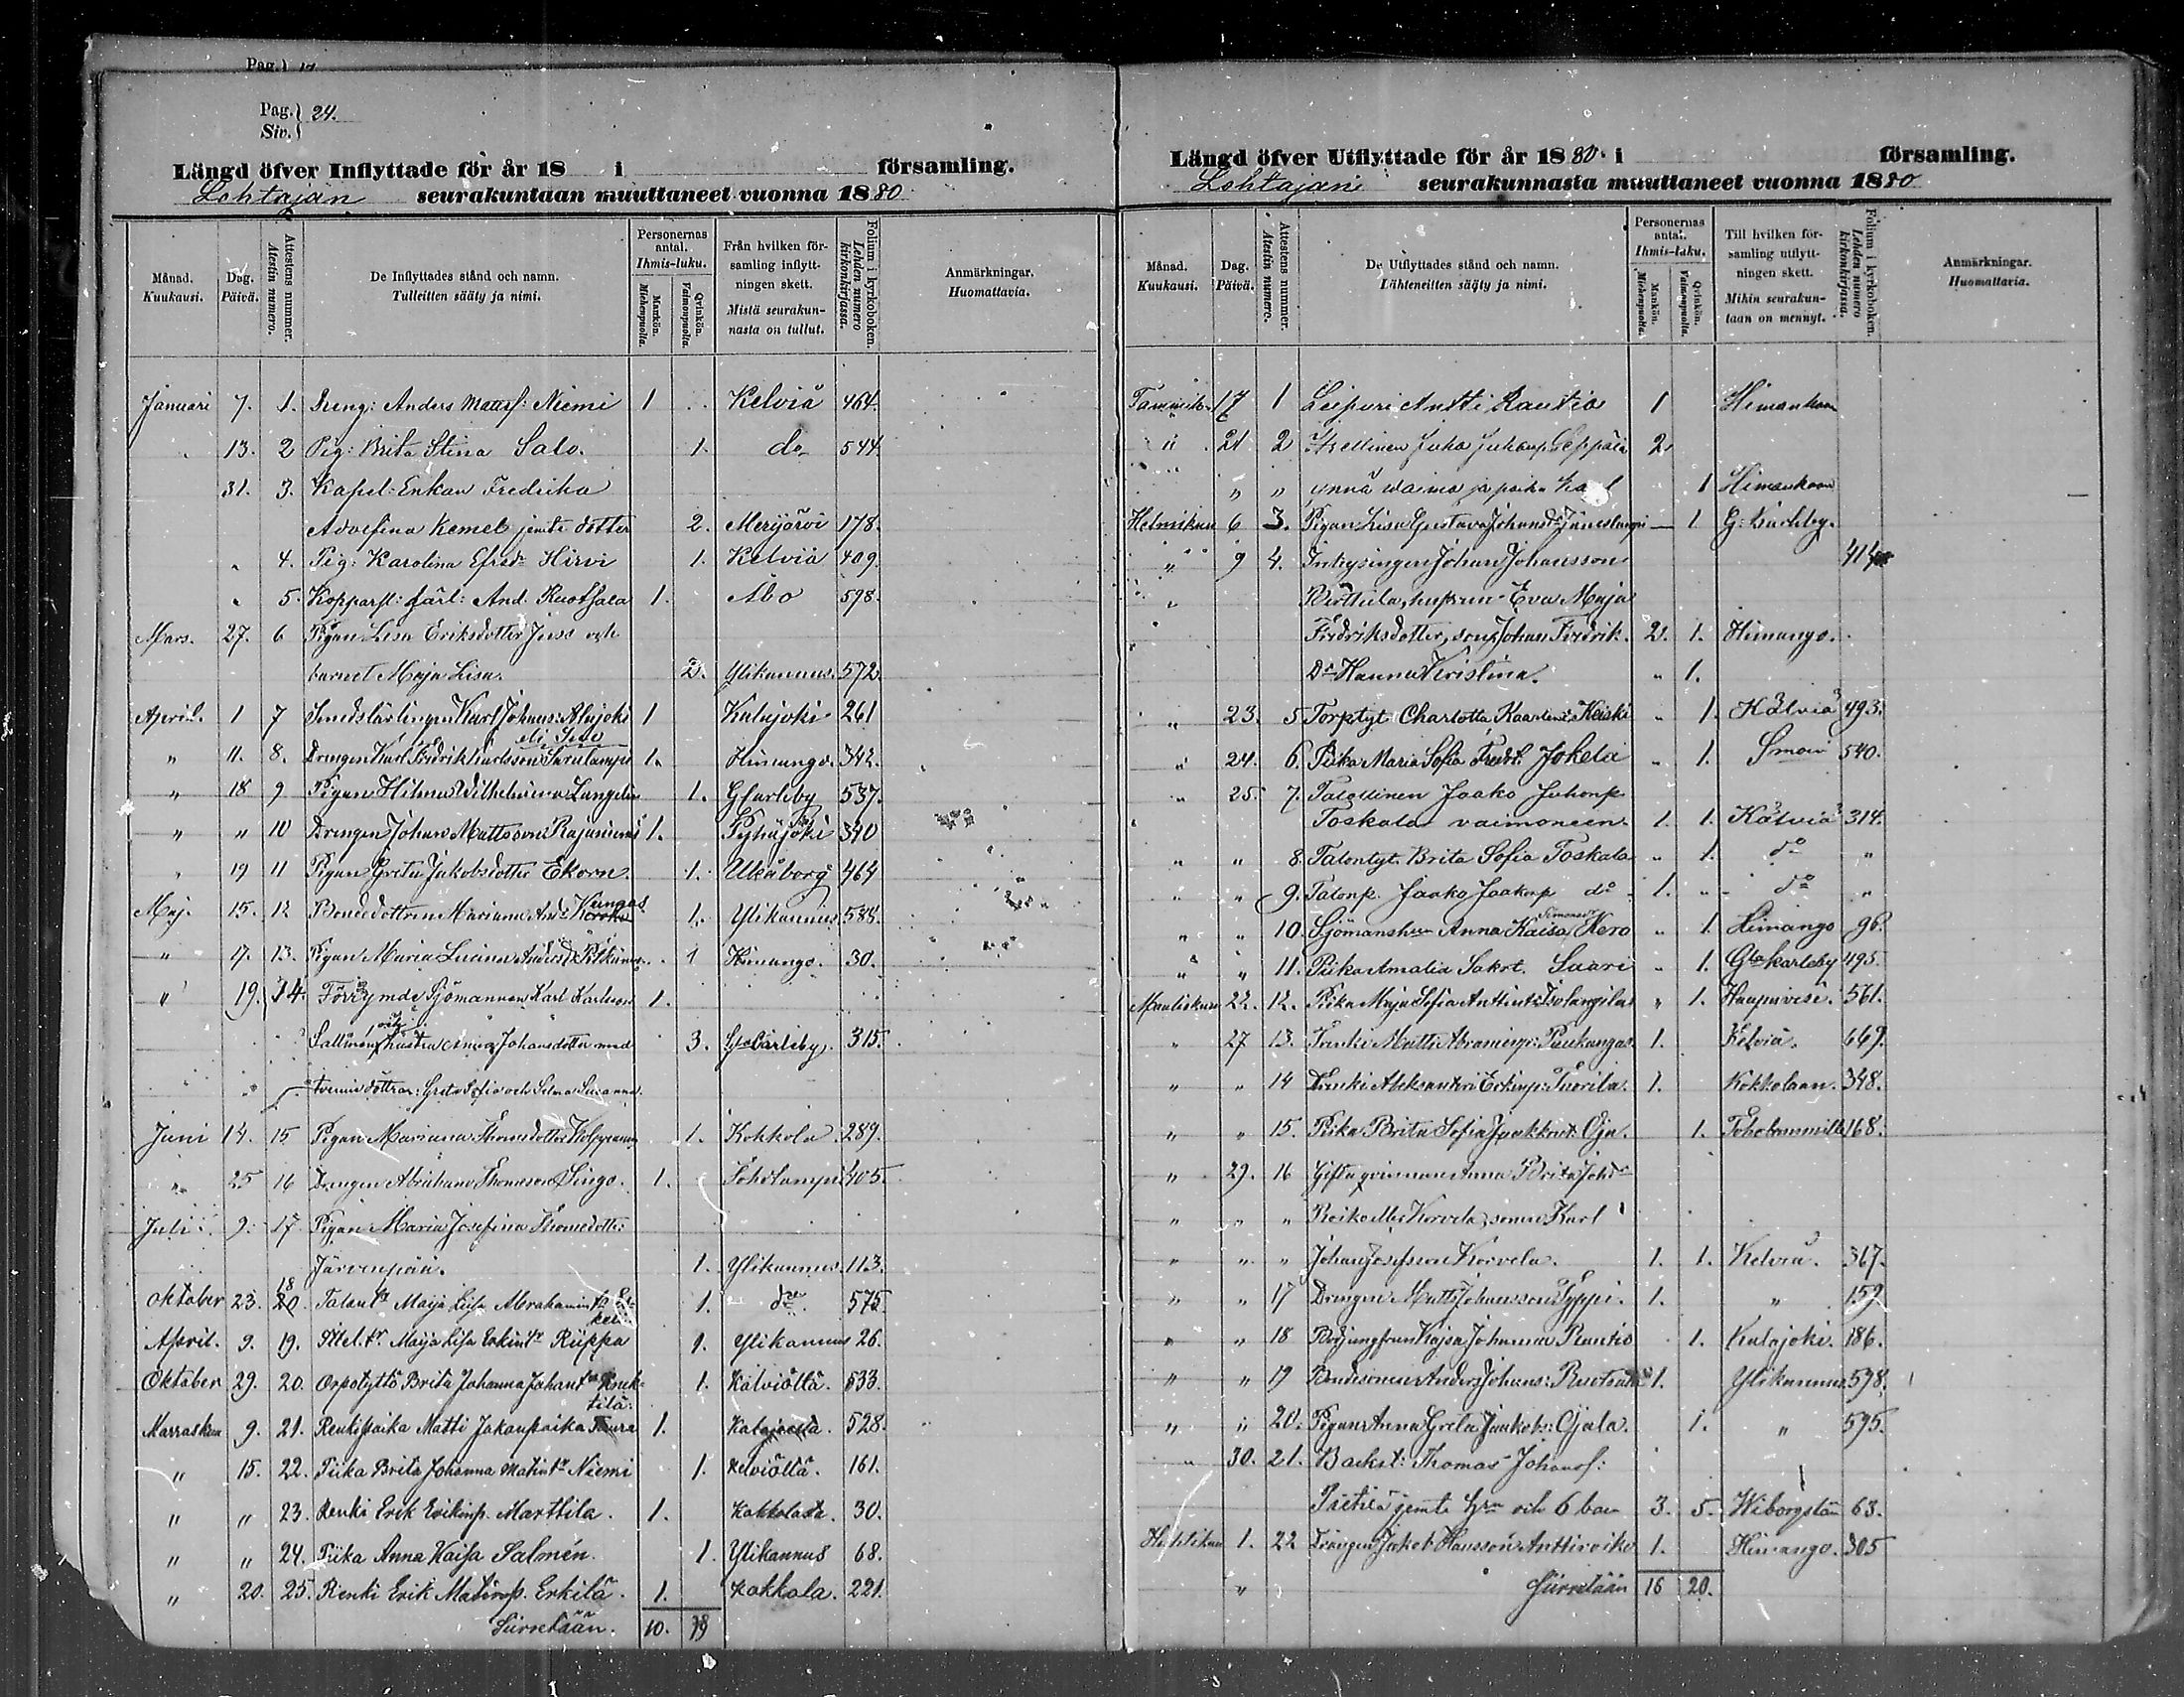 Pag.
Pag. 24.
Siv.
Längd öfver Inflyttade för år 18 i församling.
Lohtajan seurakuntaan muuttaneet vuonna 1880
Månad. Kuukausi.
Dag. Päivä.
Attestens nummer. Atestin numero.
De Inflyttades stånd och namn. Tulleitten sääty ja nimi.
Personernas antal. Ihmis-luku.
Mankön. Miehenpuolta.
Qvinkön. Vaimonpuolta.
Från hvilken församling inflyttningen skett. Mistä seurakunnasta on tullut.
Folium i kyrkoboken. Lehden numero kirkonkirjassa.
Anmärkningar. Huomattavia.
Januari 7. 1. Dreng: Anders Mattsf: Niemi 1 Kelviå 464.
13. 2 Pig: Brita Stina Salo. 1. do 544
31. 3. Kapel: Enkan Fredrika
Adolfina Kemel jemte dotter 2. Merijärvi 178.
4. Pig: Karolina Efrsdr Hirvi 1. Kelviå 409.
5. Kopparsl: lärl: And. Ruotsala 1. Åbo 598.
Mars. 27. 6 Pigan Lisa Eriksdotter Juso och
barnet Maja Lisa. 2. Ylikannus. 572.
April. 1 7 Smedslärlingen Karl Johans: Alajoki 1 Kalajoki 261
" 11. 8. Drengen Karl Fredrik Karlsson Sarulampi 1. Himango. 342.
" 18 9 Pigan Hilma Wilhelmina Langelin 1. Glcarleby 537.
" " 10 Drengen Johan Mattsson Rajaniemi 1. Pyhäjoki 340
" 19 11 Pigan Greta Jakobsdotter Ekorn. 1. Uleåborg 464
Maj. 15. 12 Bondedottren Mariana And: Kangas 1. Ylikannus 588.
" 17. 13. Pigan Maria Lucina Andersdr 1 Himango. 30.
" 19. 14. Förrymde Sjömannen Karl Karlsson 1.
Sallinen och hustru Anna Johansdotter med 3. Glacarleby. 315.
tvenne döttrar: Greta Sofia och Selma Susanna.
Juni 14. 15 Pigan Mariana Thomedotter 1. Kokkola. 289.
" 25 16 Drengen Abraham Thomasson Lingo. 1. Toholampi 405.
Juli. 9. 17. Pigan Maria Josefina Thomedotter
Järvenpää. 1. Ylikannus. 113.
Oktober 23. 18 Talont Maija Lisa Abrahamint 1. do. 575
April. 9. 19. Ittel.tr Maija Lisa Erkintr Riippa 1. Ylikannus 26.
Oktober 29. 20. Orpotyttö Brita Johanna Johant 1. Kälviöltä. 533.
Marraskuu 9. 21. Renkipaika Matti Jakaupaika 1. Kalajoelta. 528.
" 15. 22. Piika Brita Johanna Matintr Niemi 1. Kelviöltä. 161.
" " 23. Renki Erik Erikinp. Marttila. 1. Kokkolasta. 30.
" " 24. Piika Anna Kaisa Salmén. 1. Ylikannus 68.
" 20. 25. Renki Erik Matinp. Erkilä. 1. Kokkola. 221.
Siirretään. 10. 19
Längd öfver Utflyttade för år 1880. i församling.
Lohtajan seurakunnasta muuttaneet vuonna 1880
Månad. Kuukausi.
Dag. Päivä.
Attestens nummer. Atestin numero.
De Utflyttades stånd och namn. Lähteneitten sääty ja nimi.
Personernas antal. Ihmis-luku.
Mankön. Miehenpuolta.
Qvinkön. Vaimonpuolta.
Till hvilken församling utflyttningen skett. Mihin seurakuntaan on mennyt.
Folium i kyrkoboken. Lehden numero kirkonkirjassa.
Anmärkningar. Huomattavia.
Tammik. 17 1 Leipuri Antti Rautio 1 Himankaan
" 21 2 Itsellinen Juha Juhanp. Seppälä 2.
" " ynnä waimo ja poika Karl 1 Himankaan
Helmikuu 6 3. Pigan Lisa Gustava Johansdr 1. G: Karleby.
" 9 4. Inhysingen Johan Johansson 414
" Perttula, hustrun Eva Maja
Fredriksdotter, son Johan Fredrik. 2. 1. Himango.
Dr Hanna Kristina. " 1.
" 23. 5 Torptyt. Charlotta Kaarlent. Keiski " 1. Kälviä 493.
" 24. 6. Piika Maria Sofia Fredrt. Jokela " 1. Simoin 540.
" 25. 7. Talollinen Jaako Juhonp
Toskala vaimoneen. 1. 1. Kälviä 314.
" " 8. Talontyt. Brita Sofia Toskala " 1. do "
" " 9. Talonp. Jaako Jaakonp do 1. " do "
" " 10. Sjömanshu Anna Kaisa Simonsdr Kero " 1. Himango 96.
" " 11. Piika Amalia Sakrt. Suari " 1. Gla karleby 495.
Maaliskuu 22. 12. Piika Maja Sofia Anttint: Isolangila " 1. Haapavesi. 561.
" 27 13. Renki Matti Abraminp: Paukangas. 1. Kelviä. 669.
" " 14 Renki Aleksanteri Erkinp: Tuorila. 1. Kokkolaan. 348.
" " 15. Piika Brita Sofia Jaakkont. Oja. 1. Toholammille 168.
" 29. 16 Gifta qvinnan Anna Brita Johdr
" " " Korvela, sonen Karl
" " " Johan Josefsson Korvela. 1. 1. Kelviå. 367.
" " 17 Drengen Matts Johansson Typpi. 1. " 159
" " 18 Kajsa Johanna Rautio 1. Kalajoki. 186.
" " 19 Bondesonen Anders Johans: Ruotsala 1. Ylikannus 598.
" " 20. Pigan Anna Greta Jaakobs: Ojala. 1. " 595.
" 30. 21. Backst: Thomas Johansf:
Pietilä jemte hru och 6 barn 3. 5. Wiborgslän 63.
Huhtikuu 1. 22 Drängen Jakob Hansson Anttiroiko 1. Himango. 305
" Siirretään 16 20.